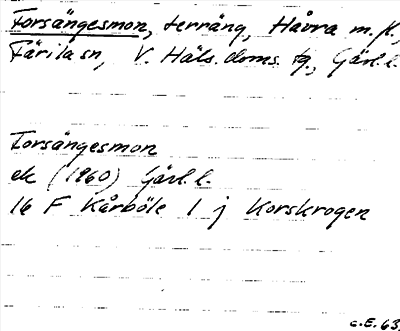 Forsängesmon, terräng, Håvra m.fl.,
Färila sn, V. Häls. doms. tg., Gävl. l.
Forsängesmon
ek (1960) Gävl. l.
16 F Kårböle 1 j Korskrogen
C.E. 63.